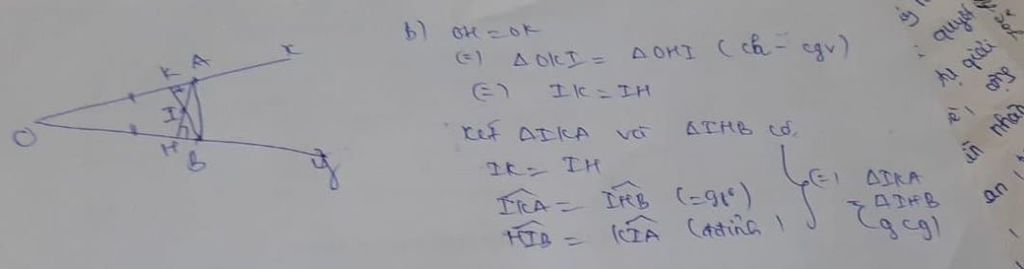 x
K A
O
I
H B
y
b) OH = OK
(=) ΔOKI = ΔOHI (ch - cgv)
(=) IK = IH
Xét ΔIKA và ΔIHB có
IK = IH
IKA = IHB (=90°)
HIB = KIA (đđỉnh)
(=) ΔIKA
= ΔIHB
(gcg)
quyết
tự giải
ống
nhân
ẩn
an